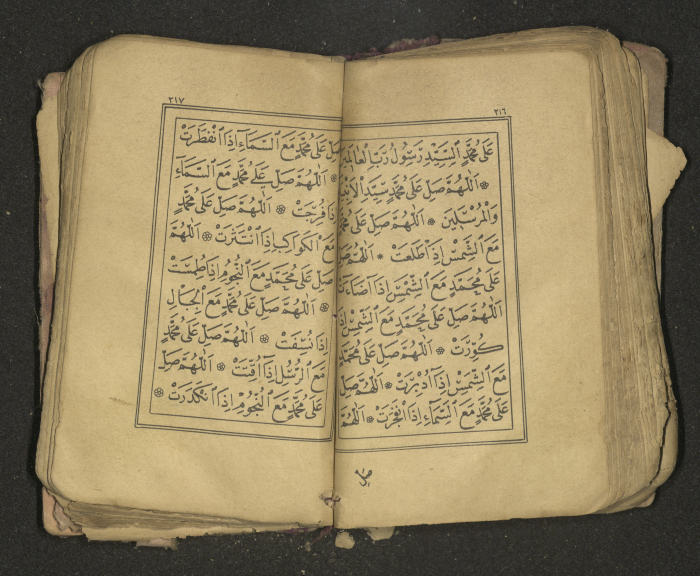 ٢١٦
عَلٰى مُحَمَّدٍ السَّيِّدِ رَسُولِ رَبِّ الْعَالَمِينَ
❊ اَللّٰهُمَّ صَلِّ عَلٰى مُحَمَّدٍ سَيِّدِ الْاَنْبِ
وَالْمُرْسَلِينَ ❊ اَللّٰهُمَّ صَلِّ عَلٰى مُحَمَّ
مَعَ الشَّمْسِ اِذَا طَلَعَتْ ❊ اَللّٰهُمَّ صَلِّ
عَلٰى مُحَمَّدٍ مَعَ الشَّمْسِ اِذَا اَضَائَتْ
اَللّٰهُمَّ صَلِّ عَلٰى مُحَمَّدٍ مَعَ الشَّمْسِ اِذَا
كُوِّرَتْ ❊ اَللّٰهُمَّ صَلِّ عَلٰى مُحَمَّدٍ
مَعَ الشَّمْسِ اِذَا اَدْبَرَتْ ❊ اَللّٰهُمَّ صَلِّ
عَلٰى مُحَمَّدٍ مَعَ السَّمَاءِ اِذَا انْفَجَرَتْ ❊ اَللّٰهُمَّ
صل
٢١٧
صَلِّ عَلٰى مُحَمَّدٍ مَعَ السَّمَاءِ اِذَا انْفَطَرَتْ
❊ اَللّٰهُمَّ صَلِّ عَلٰى مُحَمَّدٍ مَعَ السَّمَاءِ
اِذَا فُرِجَتْ ❊ اَللّٰهُمَّ صَلِّ عَلٰى مُحَمَّدٍ
مَعَ الْكَوَاكِبِ اِذَا انْتَثَرَتْ ❊ اَللّٰهُمَّ
صَلِّ عَلٰى مُحَمَّدٍ مَعَ النُّجُومِ اِذَا طُمِسَتْ
❊ اَللّٰهُمَّ صَلِّ عَلٰى مُحَمَّدٍ مَعَ الْجِبَالِ
اِذَا نُسِفَتْ ❊ اَللّٰهُمَّ صَلِّ عَلٰى مُحَمَّدٍ
مَعَ الرُّسُلِ اِذَا اُقِّتَتْ ❊ اَللّٰهُمَّ صَلِّ
عَلٰى مُحَمَّدٍ مَعَ النُّجُومِ اِذَا انْكَدَرَتْ ❊